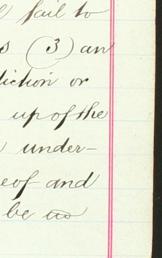 fail to
s (3) an
diction or
up of the
under-
eof and
be no